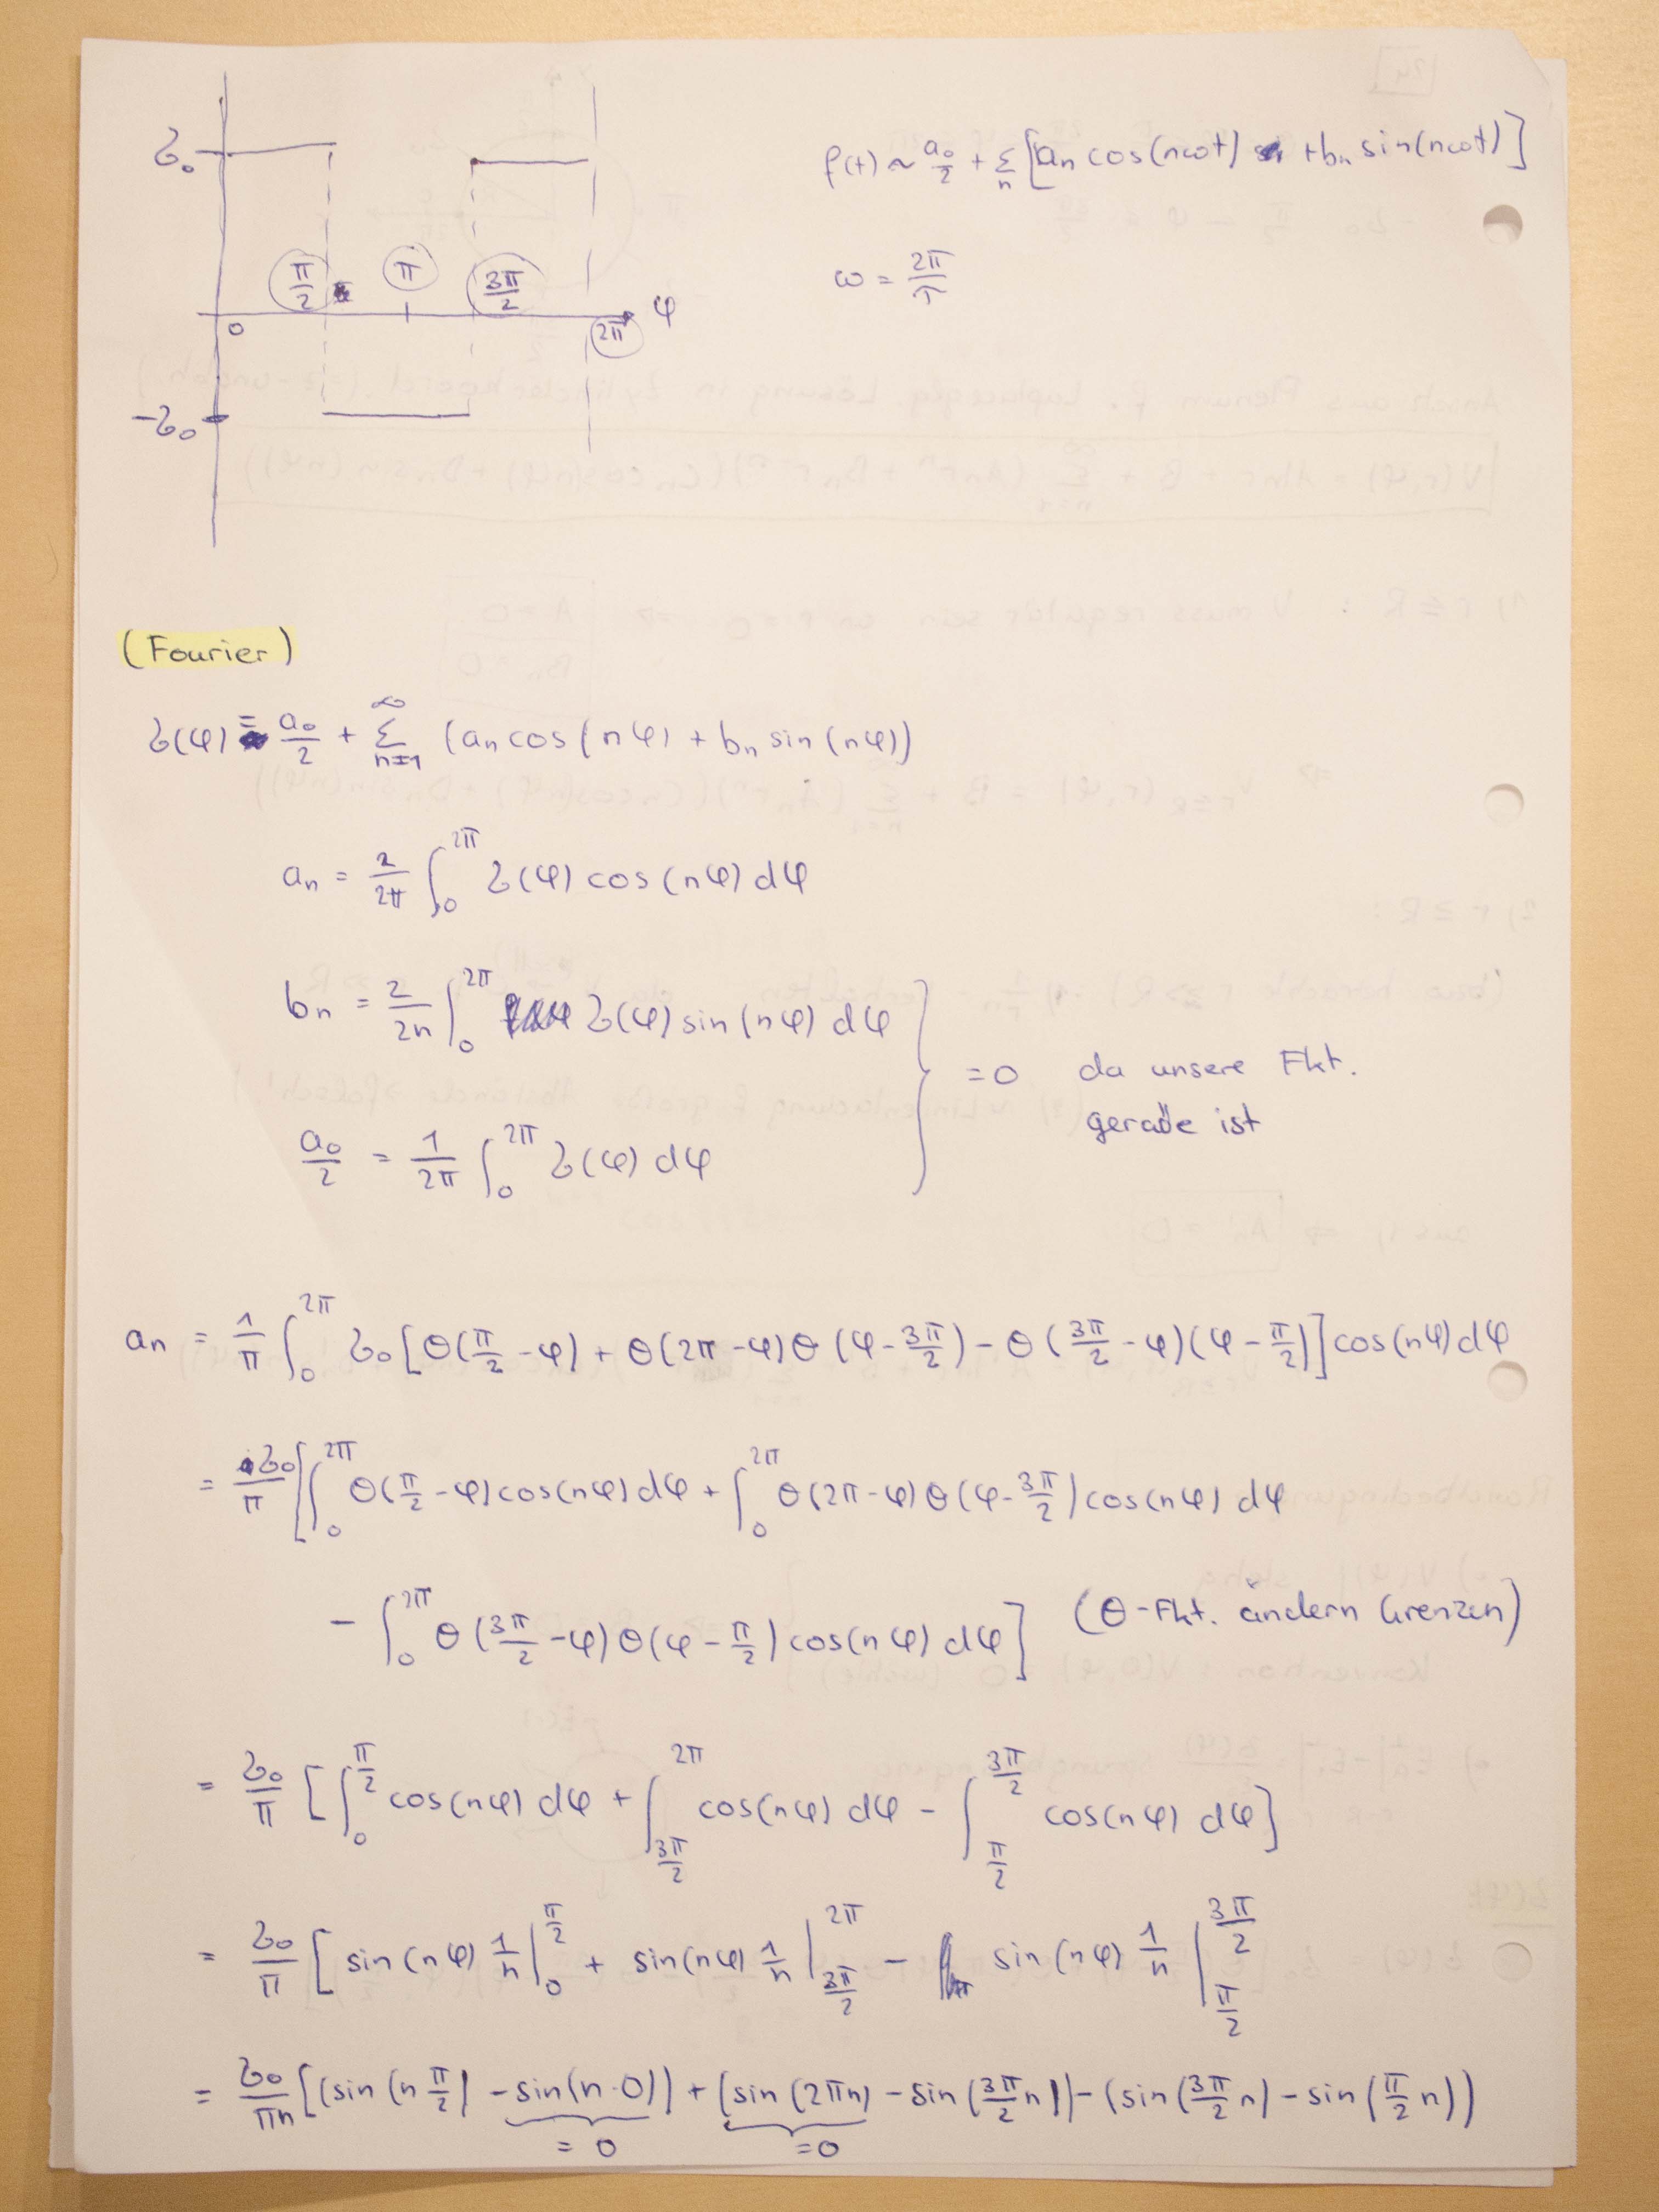 σ₀
f(t) ~ a₀/2 + Σ_n [aₙ cos(nωt) + bₙ sin(nωt)]
π/2 π 3π/2
ω = 2π/T
0 2π φ
-σ₀
(Fourier)
σ(φ) = a₀/2 + Σ_{n=1}^{∞} (aₙ cos(nφ) + bₙ sin(nφ))
aₙ = 2/2π ∫₀^{2π} σ(φ) cos(nφ) dφ
bₙ = 2/2π ∫₀^{2π} σ(φ) sin(nφ) dφ
= 0 da unsere Fkt.
gerade ist
a₀/2 = 1/2π ∫₀^{2π} σ(φ) dφ
aₙ = 1/π ∫₀^{2π} σ₀ [Θ(π/2 - φ) + Θ(2π - φ) Θ(φ - 3π/2) - Θ(3π/2 - φ)(φ - π/2)] cos(nφ) dφ
= σ₀/π [∫₀^{2π} Θ(π/2 - φ) cos(nφ) dφ + ∫₀^{2π} Θ(2π - φ) Θ(φ - 3π/2) cos(nφ) dφ
- ∫₀^{2π} Θ(3π/2 - φ) Θ(φ - π/2) cos(nφ) dφ] (Θ-Fkt. ändern Grenzen)
= σ₀/π [∫₀^{π/2} cos(nφ) dφ + ∫_{3π/2}^{2π} cos(nφ) dφ - ∫_{π/2}^{3π/2} cos(nφ) dφ]
= σ₀/π [sin(nφ) 1/n |₀^{π/2} + sin(nφ) 1/n |_{3π/2}^{2π} - sin(nφ) 1/n |_{π/2}^{3π/2}
= σ₀/πn [(sin(n π/2) - sin(n·0)) + (sin(2πn) - sin(3π/2 n)) - (sin(3π/2 n) - sin(π/2 n))
= 0 = 0